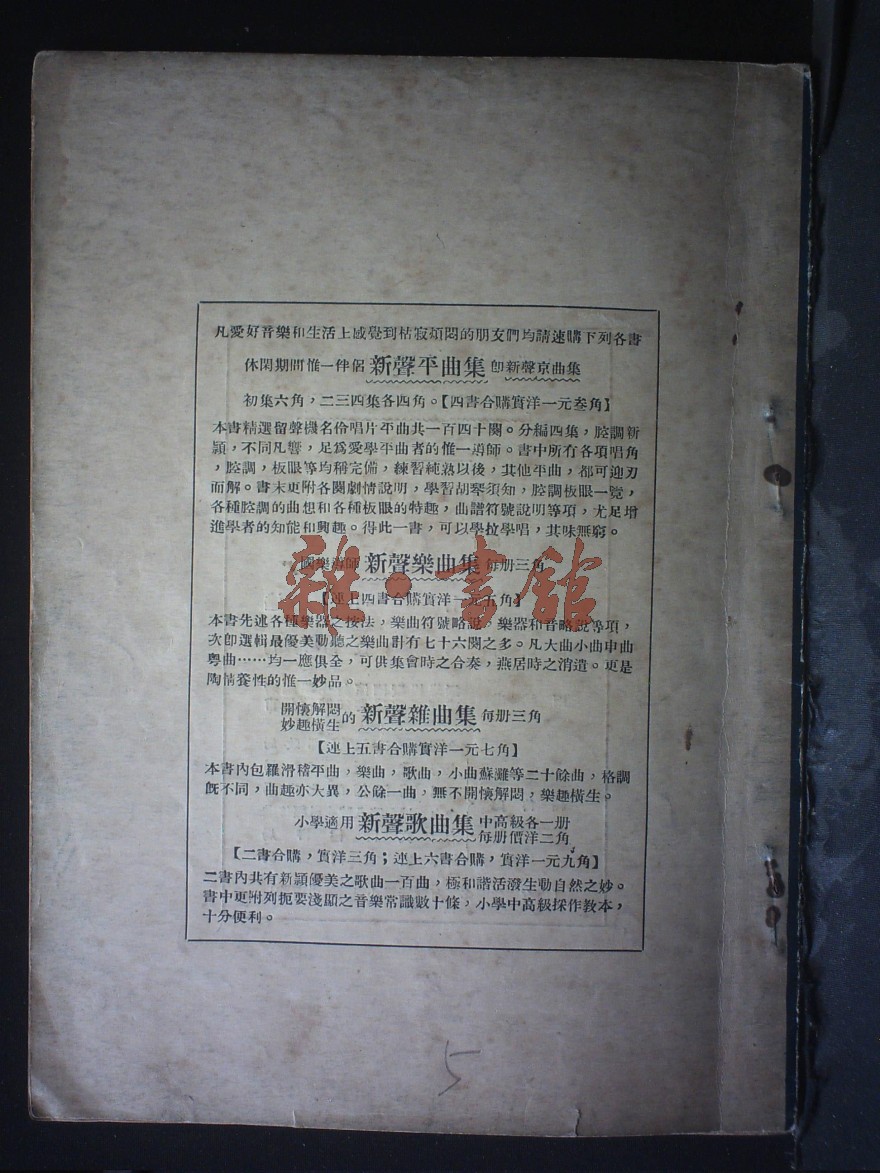 凡愛好音樂和生活上感覺到枯寂煩悶的朋友們均請速購下列各書
休閑期間惟一伴侶 新聲平曲集 卽新聲京曲集
初集六角，二三四集各四角。【四書合購實洋一元叁角】
本書精選留聲機名伶唱片平曲共一百四十闋。分編四集，腔調新
頴，不同凡響，足爲愛學平曲者的惟一導師。書中所有各項唱角
，腔調，板眼等均稱完備，練習純熟以後，其他平曲，都可迎刃
而解。書末更附各闋劇情說明，學習胡琴須知，腔調板眼一覽，
各種腔調的曲想和各種板眼的特趣，曲譜符號說明等項，尤足增
進學者的知能和興趣。得此一書，可以學拉學唱，其味無窮。
國樂導師 新聲樂曲集 每册三角
【連上四書合購實洋一元五角】
本書先述各種樂器之按法，樂曲符號略說，樂器和音略說等項，
次卽選輯最優美動聽之樂曲計有七十六闋之多。凡大曲小曲申曲
粵曲……均一應俱全，可供集會時之合奏，燕居時之消遣。更是
陶情養性的惟一妙品。
開懷解悶
妙趣橫生的 新聲雜曲集 每册三角
【連上五書合購實洋一元七角】
本書內包羅滑稽平曲，樂曲，歌曲，小曲蘇灘等二十餘曲，格調
旣不同，曲趣亦大異，公餘一曲，無不開懷解悶，樂趣橫生。
小學適用 新聲歌曲集 中高級各一册
每册價洋二角
【二書合購，實洋三角；連上六書合購，實洋一元九角】
二書內共有新頴優美之歌曲一百曲，極和諧活潑生動自然之妙。
書中更附列扼要淺顯之音樂常識數十條，小學中高級採作教本，
十分便利。
雜·書館
5